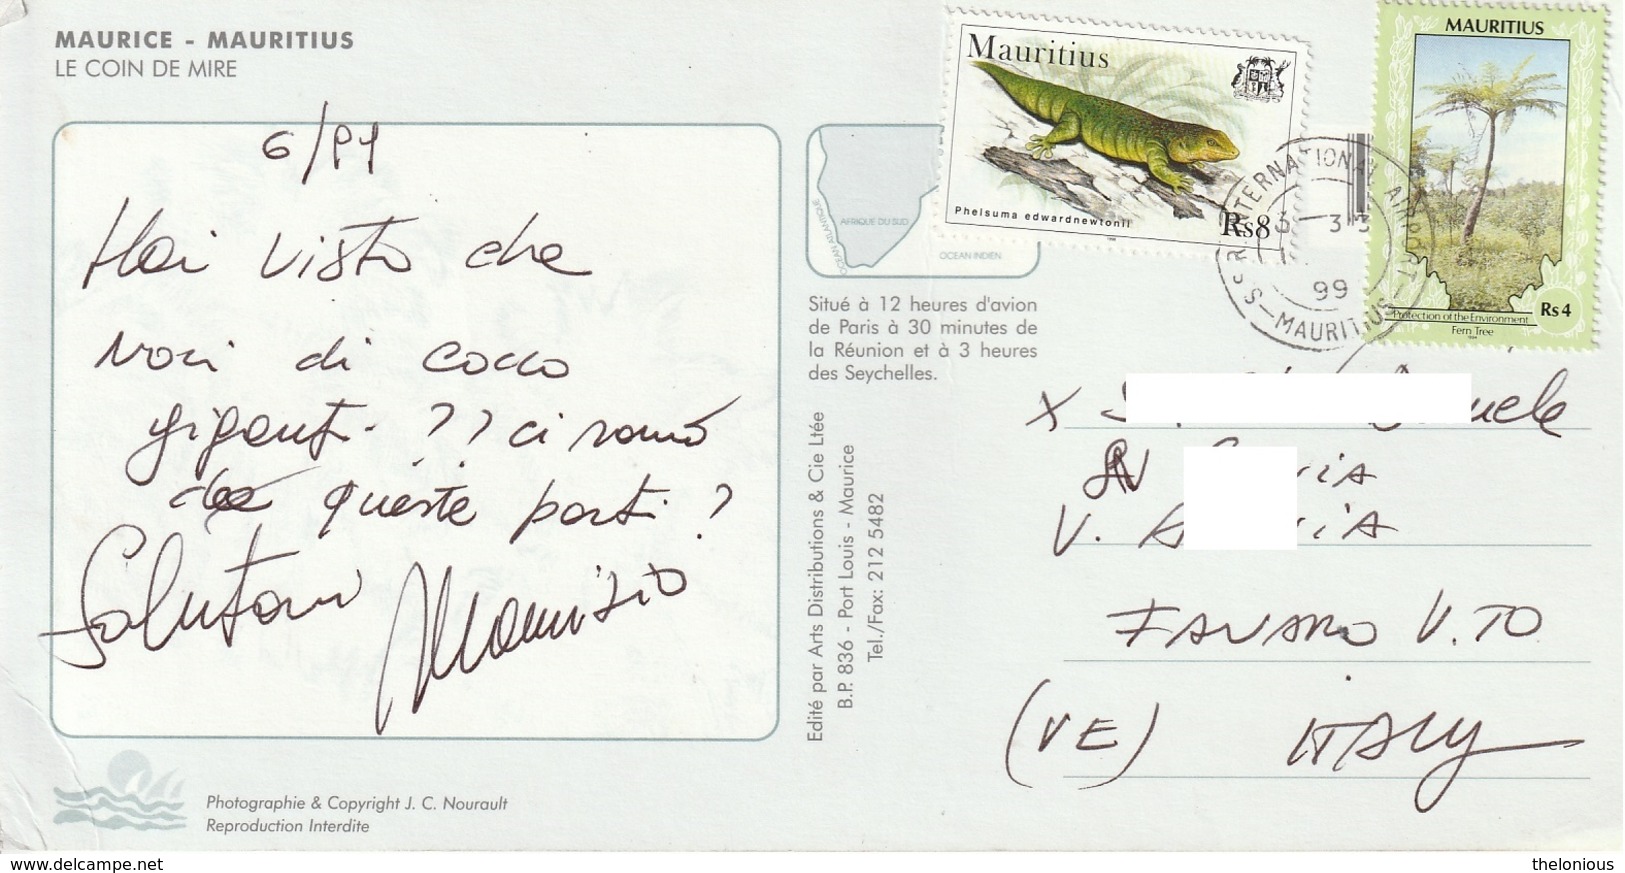 MAURICE - MAURITIUS
LE COIN DE MIRE
Hai visto che
noci di cocco
giganti ?? ci sono
queste parti ?
Salutoni Maurizio
Photographie & Copyright J. C. Nourault
Reproduction Interdite
AFRIQUE DU SUD
OCEAN ATLANTIQUE
OCEAN INDIEN
Situé à 12 heures d'avion
de Paris à 30 minutes de
la Réunion et à 3 heures
des Seychelles.
Edité par Arts Distributions & Cie Ltée
B.P. 836 - Port Louis - Maurice
Tel./Fax: 212 5482
Mauritius
Phelsuma edwardnewtonii
Rs8
MAURITIUS
Protection of the Environment
Fern Tree
Rs4
INTERNATIONAL AIRPORT
MAURITIUS
99
X
V.
FAVARO V.TO
(VE) ITALY
www.delcampe.net
thelonious